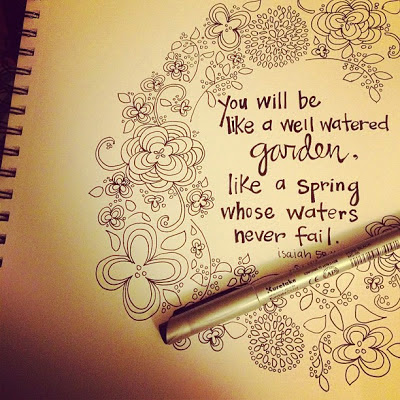 you will be
like a well watered
garden,
like a spring
whose waters
never fail.
isaiah
Kuretake